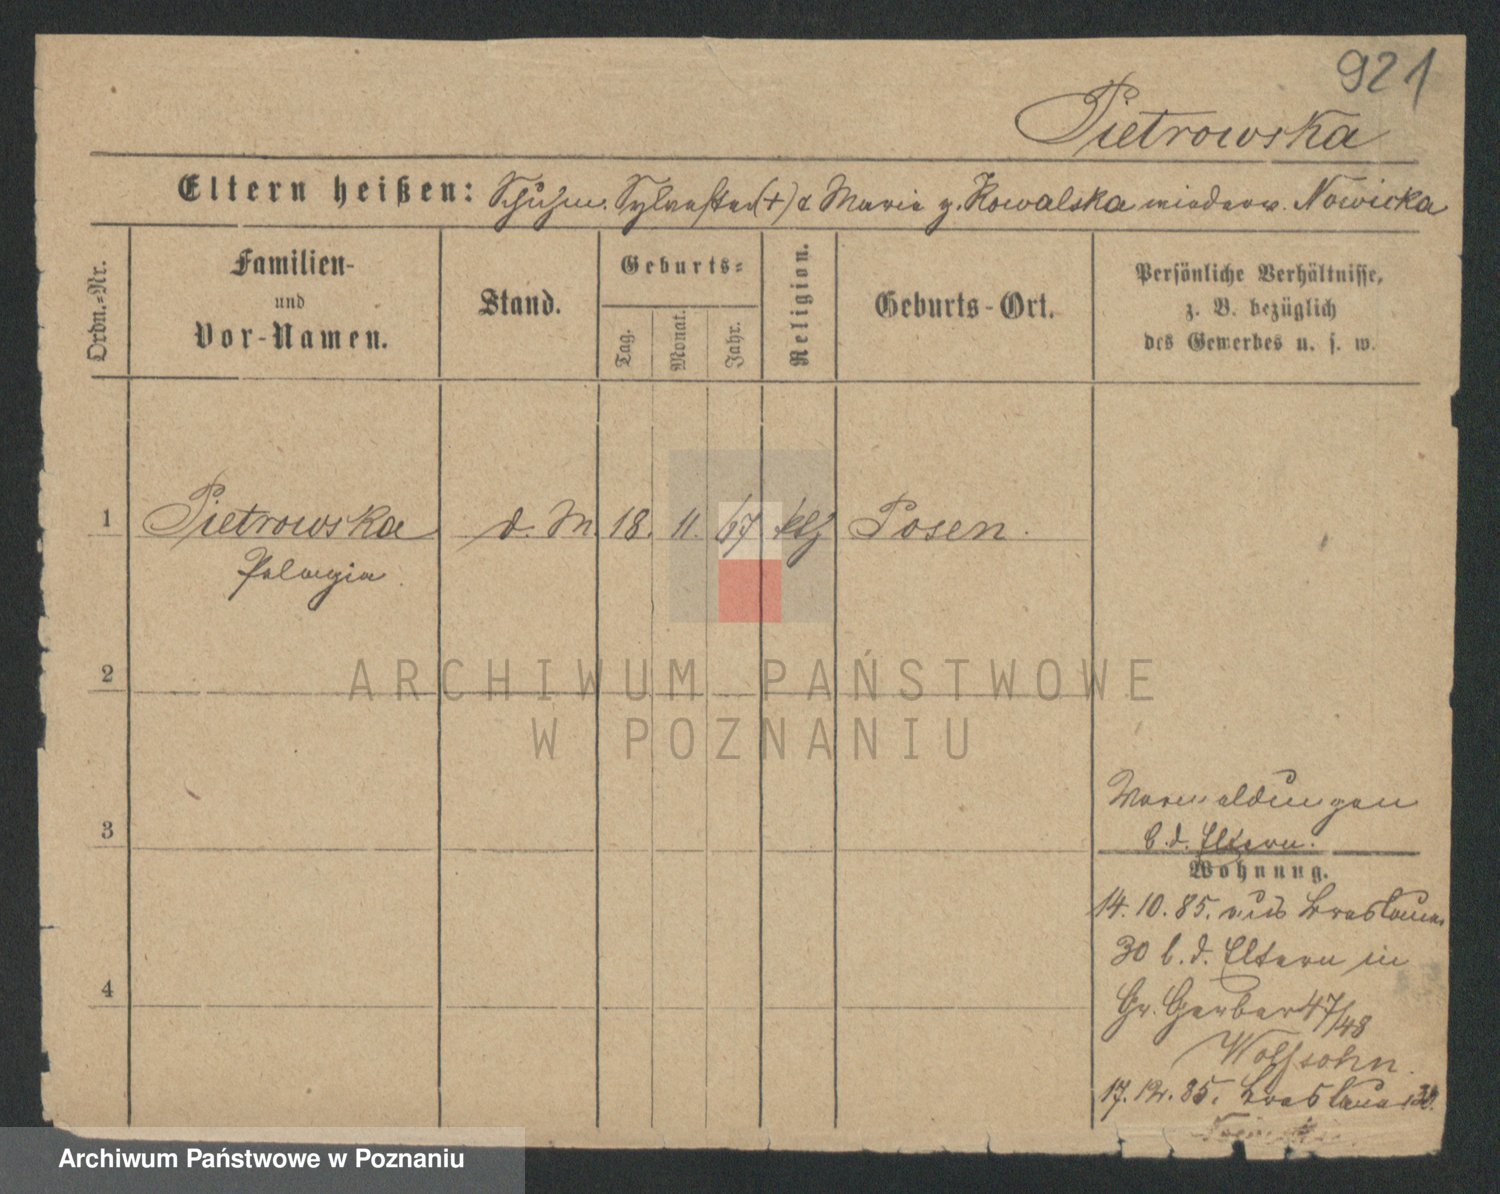 921
Pietrowska
Eltern heißen: Schuhm. Sylvester (+) & Marie g. Kowalska wiederv. Nowicka
Ordn.=Nr.
Familien-
und
Vor-Namen.
Stand.
Geburts=
Tag.
Monat.
Jahr.
Religion.
Geburts-Ort.
Persönliche Verhältnisse,
z. B. bezüglich
des Gewerbes u. s. w.
1 Pietrowska d. M. 18. 11. 67 kth Posen.
Pelagia.
2
ARCHIWUM PAŃSTWOWE
W POZNANIU
3
Vormeldungen
b. d. Eltern.
Wohnung.
14. 10. 85. aus Breslauer
30 b. d. Eltern in
4
Gr. Gerber 47/48
Wolfsohn.
17. 12. 85. Breslauer 30.
Archiwum Państwowe w Poznaniu